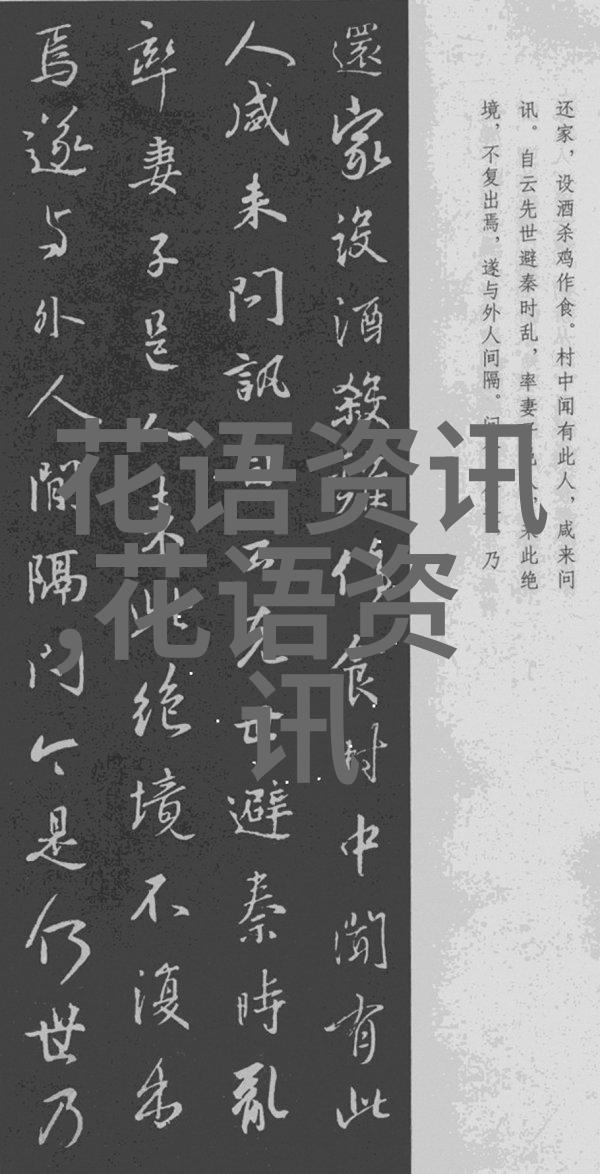 还家，设酒杀鸡作食。村中闻有此人，咸来问
讯。自云先世避秦时乱，率妻子邑人，来此绝
境，不复出焉，遂与外人间隔。问乃
還家設酒殺雞作食村中聞有此
人咸来問訊自云先世避秦時亂
率妻子邑人来此絶境不復出
焉遂与外人間隔問今是何世乃
花语资讯
,花语资
讯